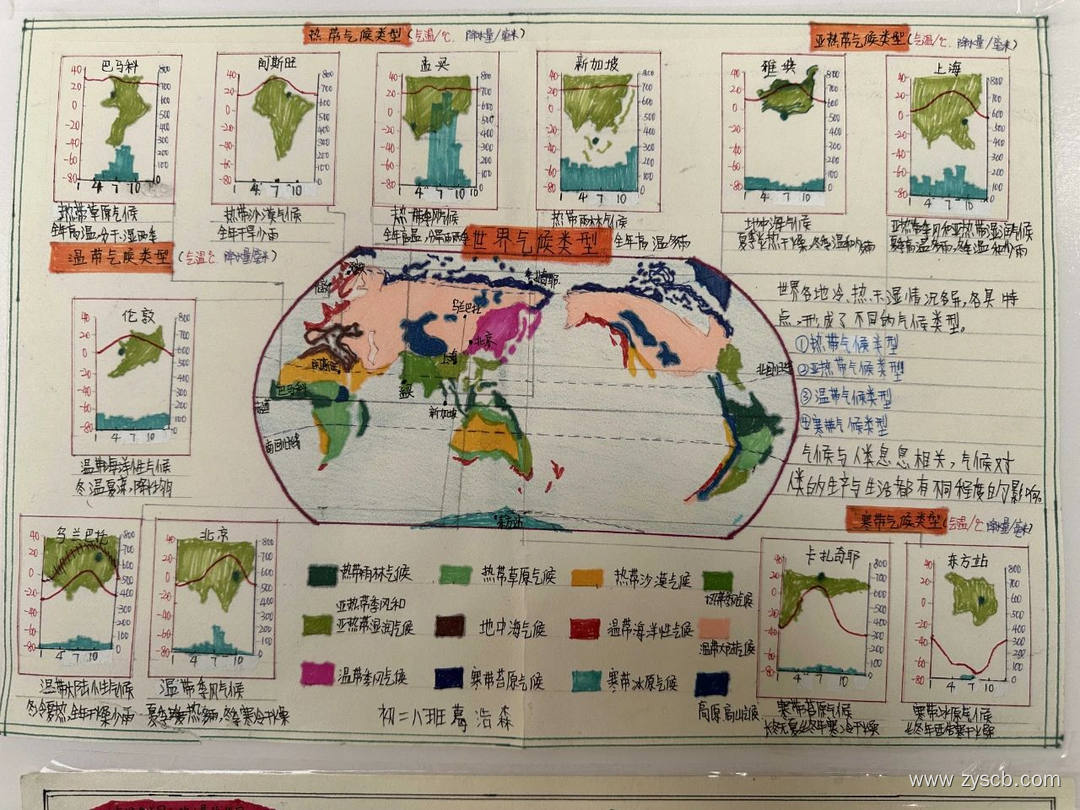 热带气候类型(气温/℃ 降水量/毫米)
亚热带气候类型(气温/℃ 降水量/毫米)
巴马科
阿斯旺
孟买
新加坡
雅典
上海
热带草原气候
全年高温分干湿两季
热带沙漠气候
全年干旱少雨
热带季风气候
热带雨林气候
全年高温多雨
地中海气候
夏季炎热干燥,冬季温和少雨
亚热带季风和亚热带湿润气候
温带气候类型(气温℃ 降水量/毫米)
世界气候类型
伦敦
温带海洋性气候
冬温夏凉,降水均匀
世界各地冷、热、干、湿情况各异,各具特
点,形成了不同的气候类型。
①热带气候类型
②亚热带气候类型
③温带气候类型
④寒带气候类型
气候与人类息息相关,气候对
人类的生产与生活都有不同程度的影响。
乌兰巴托
北京
上海
阿斯旺
巴马科
孟买
新加坡
赤道
南回归线
北回归线
东方站
乌兰巴托
北京
温带大陆性气候
冬冷夏热,全年干燥少雨
温带季风气候
寒带气候类型(气温/℃ 降水量/毫米)
卡扎奇耶
东方站
寒带苔原气候
寒带冰原气候
热带雨林气候
热带草原气候
热带沙漠气候
热带季风气候
亚热带季风和
亚热带湿润气候
地中海气候
温带海洋性气候
温带大陆性气候
温带季风气候
寒带苔原气候
寒带冰原气候
高原高山气候
初二八班葛浩森
www.zyscb.com